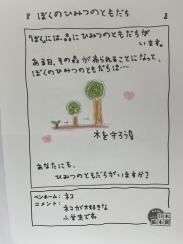 『 ぼくのひみつのともだち 』
ぼくには、森にひみつのともだちが
います。
ある日、その森が売られることになって、
ぼくのひみつのともだちは…
木を守ろう!
あなたにも、
ひみつのともだちがいますか?
ペンネーム：ネコ
コメント：
ネコが大好きな
小学生です。